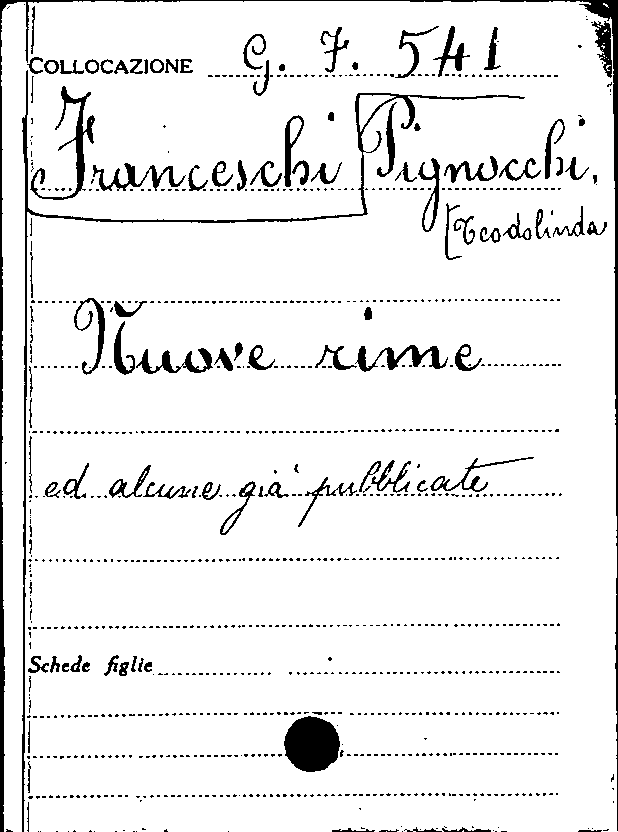 COLLOCAZIONE G. F. 541
Franceschi Pignocchi,
[Teodolinda
Nuove rime
ed alcune già pubblicate
Schede figlie